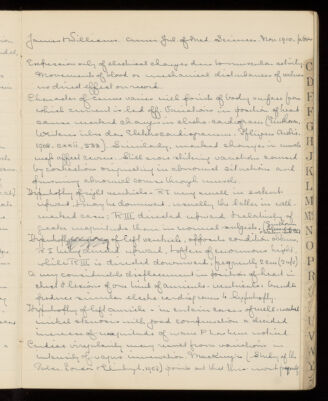 James & Williams. Amer. Jnl. of Med. Sciences. Nov 1910.
Expression only of electrical changes due to muscular activity
Movements of blood or mechanical disturbances of
no direct effect on record.
Character of curve varies with points of body surface from
which current is led off. Variations in position of heart
cause marked change in electro cardiogram (Einthoven,
Weiteres über das Elektrocardiogramm. Pflügers Archiv,
1908. cxxii, 533) Similarly, marked changes in
effect curve. Still more striking variation caused
by contraction originating in abnormal situations and
pursuing abnormal course through muscle.
Hypertrophy of right ventricle - R I very small in extent
upward, & may be downward, usually the latter in well-
marked case; R III directed upward & relatively of
greater magnitude than in normal subject.
Hypertrophy of left ventricle, opposite condition obtains,
R I upward, & often of enormous height
while R III is directed downward, frequently 2 cm
Any considerable displacement in position of heart in
chest & lesions of one kind of
produce similar electro cardiograms to hypertrophy.
Hypertrophy of left auricle - in certain cases of well-marked
mitral stenosis with good compensation a decided
increase of magnitude of wave P has been noticed
Cardiac irregularity may result from variation in
intensity of vagus innervation. Mackenzie (Study of the
Pulse London & Edinburgh, 1902) points out that this is most
C
D
F
G
H
J
K
L
M
N
O
P
R
S
T
U
V
W
Y